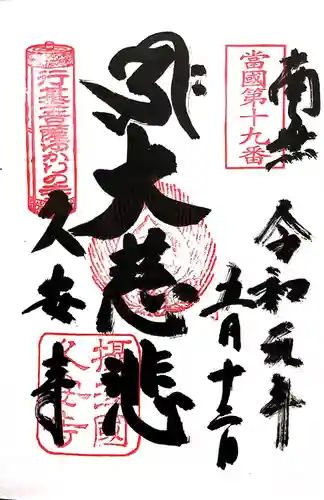 當國第十九番
奉拝
令和元年
五月十二日
大慈悲
行基菩薩ゆかりの
久安寺
摂津國
久安寺